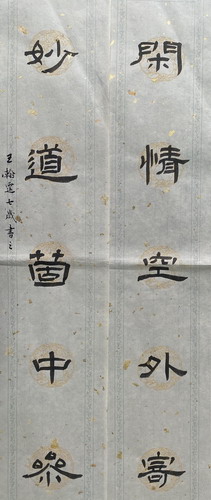 閑情空外寄
妙道箇中參
王翰霆七歲書之